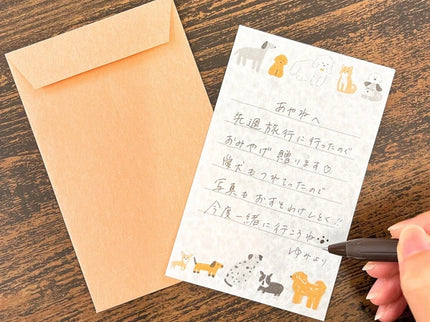 あやかへ
先週旅行に行ったので
おみやげ贈ります♡
愛犬もつれてったので
写真もおすそわけしとく!!
今度一緒に行こうね
ゆみより